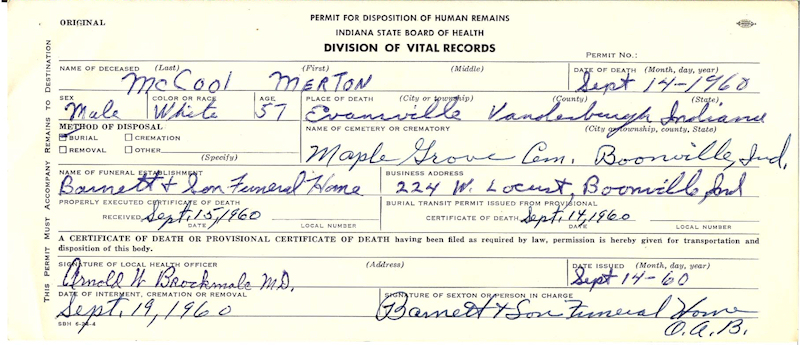 ORIGINAL
PERMIT FOR DISPOSITION OF HUMAN REMAINS
INDIANA STATE BOARD OF HEALTH
DIVISION OF VITAL RECORDS
PERMIT NO.:
THIS PERMIT MUST ACCOMPANY REMAINS TO DESTINATION
NAME OF DECEASED (Last) (First) (Middle) DATE OF DEATH (Month, day, year)
McCool MERTON Sept 14-1960
SEX COLOR OR RACE AGE PLACE OF DEATH (City or township) (County) (State)
Male White 57 Evansville Vanderburgh Indiana
METHOD OF DISPOSAL NAME OF CEMETERY OR CREMATORY (City or township, county, State)
BURIAL CREMATION
REMOVAL OTHER
(Specify)
Maple Grove Cem. Boonville, Ind.
NAME OF FUNERAL ESTABLISHMENT BUSINESS ADDRESS
Barnett & Son Funeral Home 224 W. Locust, Boonville, Ind
PROPERLY EXECUTED CERTIFICATE OF DEATH BURIAL TRANSIT PERMIT ISSUED FROM PROVISIONAL
RECEIVED Sept. 15, 1960 CERTIFICATE OF DEATH Sept. 14, 1960
DATE LOCAL NUMBER DATE LOCAL NUMBER
A CERTIFICATE OF DEATH OR PROVISIONAL CERTIFICATE OF DEATH having been filed as required by law, permission is hereby given for transportation and
disposition of this body.
SIGNATURE OF LOCAL HEALTH OFFICER (Address) DATE ISSUED (Month, day, year)
Arnold W Brockmole M.D. Sept 14-60
DATE OF INTERMENT, CREMATION OR REMOVAL SIGNATURE OF SEXTON OR PERSON IN CHARGE
Sept. 19, 1960 Barnett & Son Funeral Home
O.A.B.
SBH 6-24-4